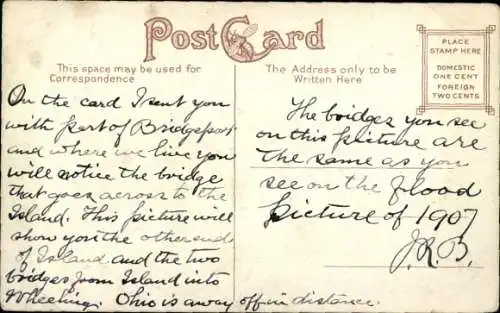 Post Card
This space may be used for
Correspondence
The Address only to be
Written Here
PLACE
STAMP HERE
DOMESTIC
ONE CENT
FOREIGN
TWO CENTS
On the card I sent you
with part of Bridgeport
and where we live you
will notice the bridge
that goes across to the
Island. This picture will
show you the other end
of Island and the two
bridges from Island into
Wheeling. Ohio is away off in distance.
The bridges you see
on this picture are
the same as you
see on the flood
picture of 1907
J.R.B.